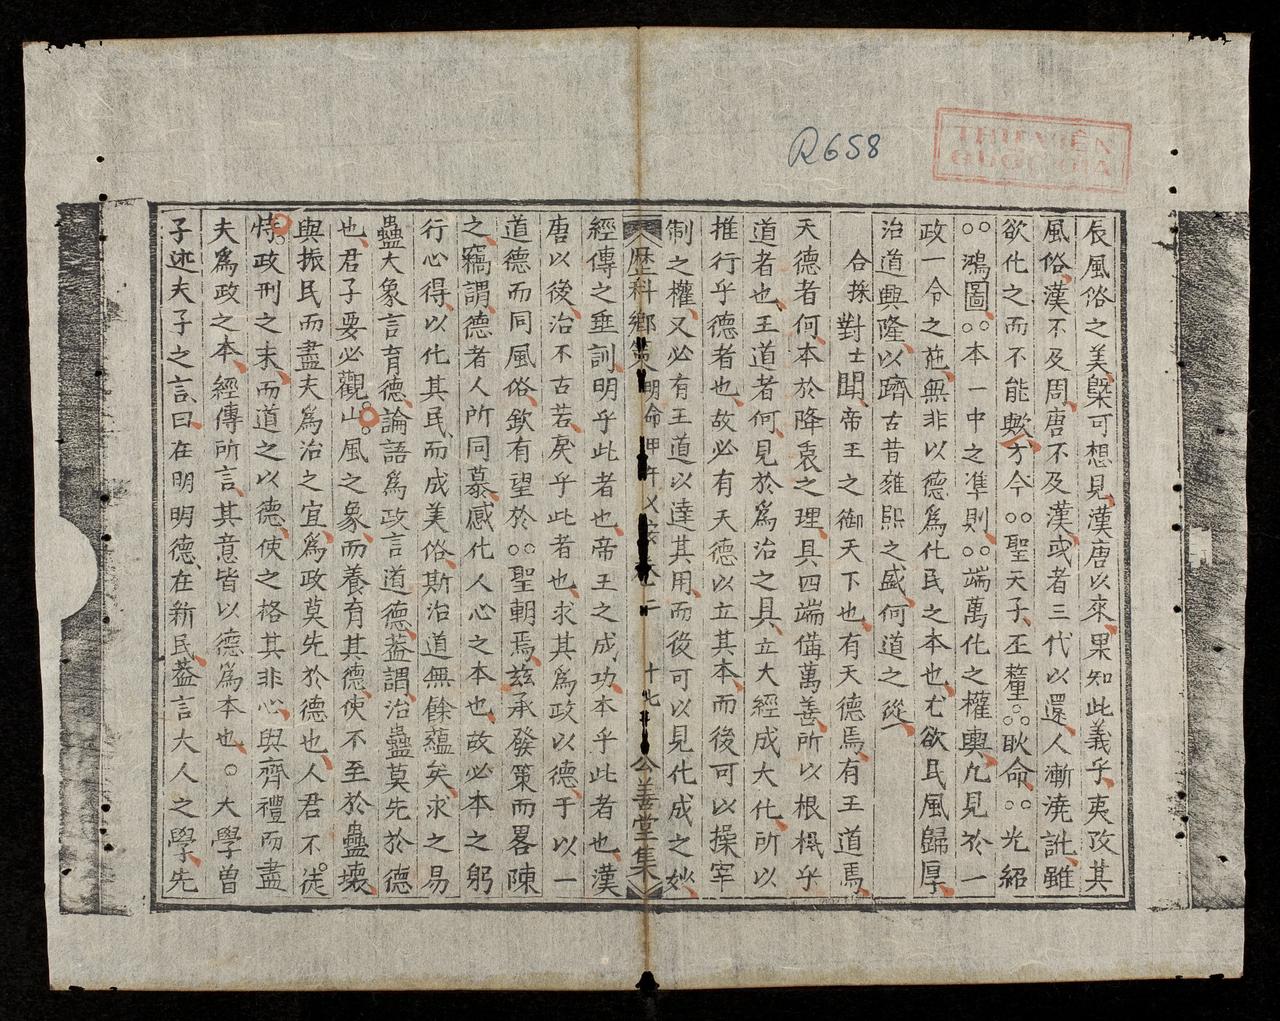 R658
THƯ VIỆN
QUỐC GIA
辰風俗之美槩可想見漢唐以來果知此義乎夷攷其
風俗漢不及周唐不及漢或者三代以還人漸澆訛雖
欲化之而不能歟方今○○聖天子丕釐○○耿命○○光紹
○○鴻圖○○本一中之準則○○端萬化之權輿凡見於一
政一令之施無非以德爲化民之本也尤欲民風歸厚
治道興隆以躋古昔雍熙之盛何道之從
合採對士聞帝王之御天下也有天德焉有王道焉
天德者何本於降衷之理具四端備萬善所以根柢乎
道者也王道者何見於爲治之具立大經成大化所以
推行乎德者也故必有天德以立其本而後可以操宰
制之權又必有王道以達其用而後可以見化成之妙
歷科鄉策 明命甲午 二 十七 公善堂集
經傳之垂訓明乎此者也帝王之成功本乎此者也漢
唐以後治不古若戾乎此者也求其爲政以德于以一
道德而同風俗欽有望於○○聖朝焉茲承發策而畧陳
之竊謂德者人所同慕感化人心之本也故必本之躬
行心得以化其民而成美俗斯治道無餘蘊矣求之易
蠱大象言育德論語爲政言道德葢謂治蠱莫先於德
也君子要必觀山風之象而養育其德使不至於蠱壞
與振民而盡夫爲治之宜爲政莫先於德也人君不徒
恃政刑之末而道之以德使之格其非心與齊禮而盡
夫爲政之本經傳所言其意皆以德爲本也○大學曾
子述夫子之言曰在明明德在新民葢言大人之學先